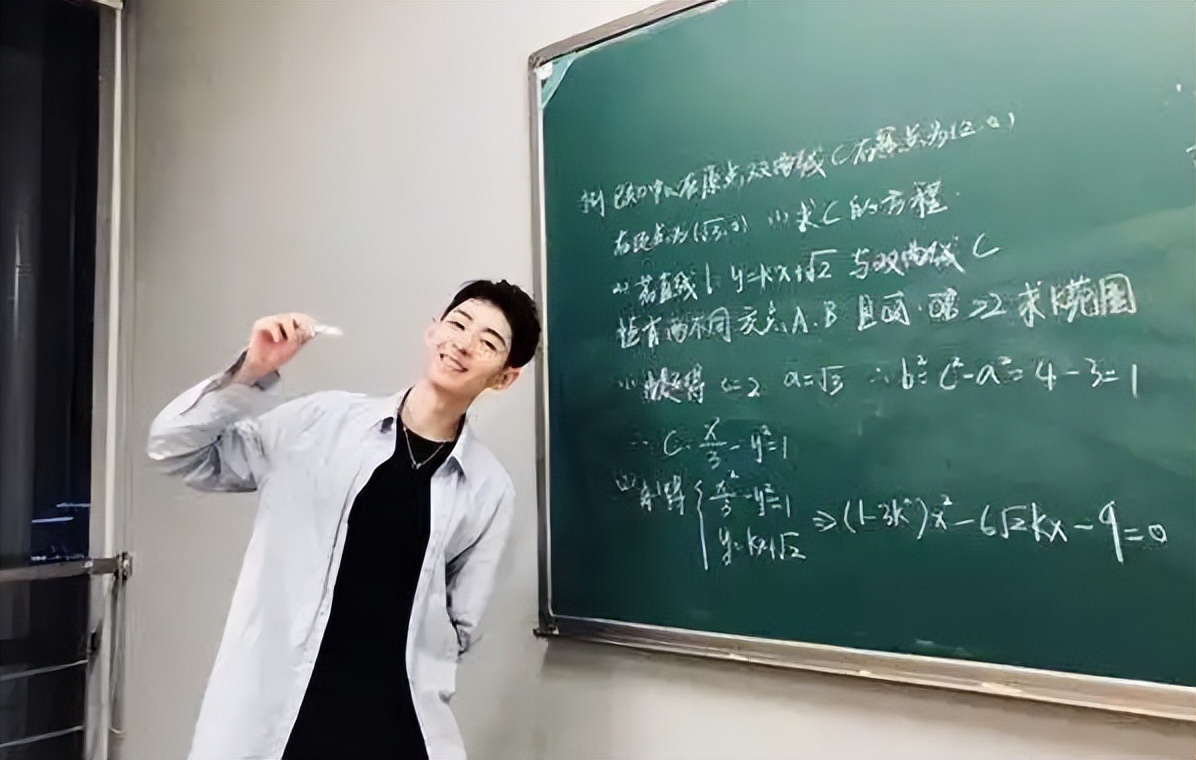 例 已知中心在原点双曲线C右焦点为(2,0)
右顶点为(√3,0) (1)求C的方程.
(2) 若直线l y=kx+√2 与双曲线C
恒有两不同交点A.B 且 >2 求k范围
(1) 由题得 c=2 a=√3 ∴ b²=c²-a²=4-3=1
∴ C: x²/3 - y²=1
(2) 得 { x²/3 - y²=1
y=kx+√2
⇒ (1-3k²)x²-6√2kx-9=0